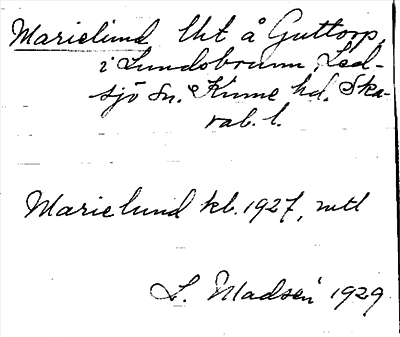 Marielund lht å Guttorp,
i Lundsbrunn, Led-
sjö sn. Kinne hd. Ska-
rab. l.
Marielund kb. 1927, mtl
L. Madsén 1929